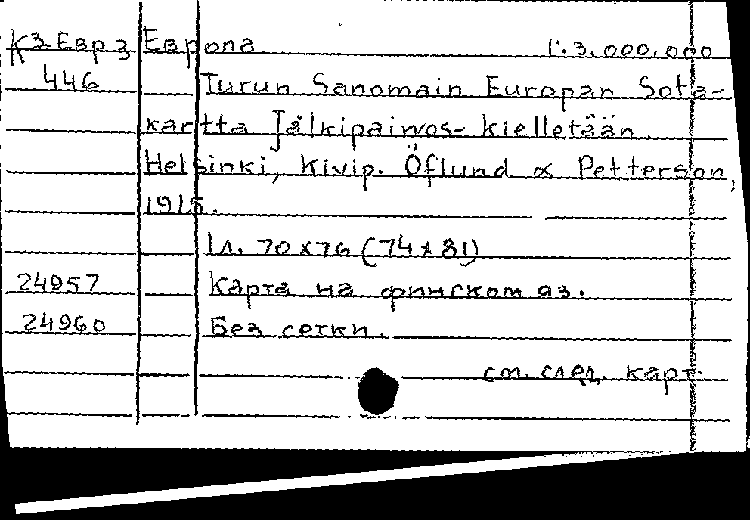 К3-Евр3 Европа 1:3.000.000
446 Turun Sanomain Europan Sota-
kartta Jälkipainos- kielletään.
Helsinki, Kivip. Öflund & Petterson,
1915.
1л. 70x76 (74x81)
24957 Карта на финском яз.
24960 Без сетки.
см. след. карт.